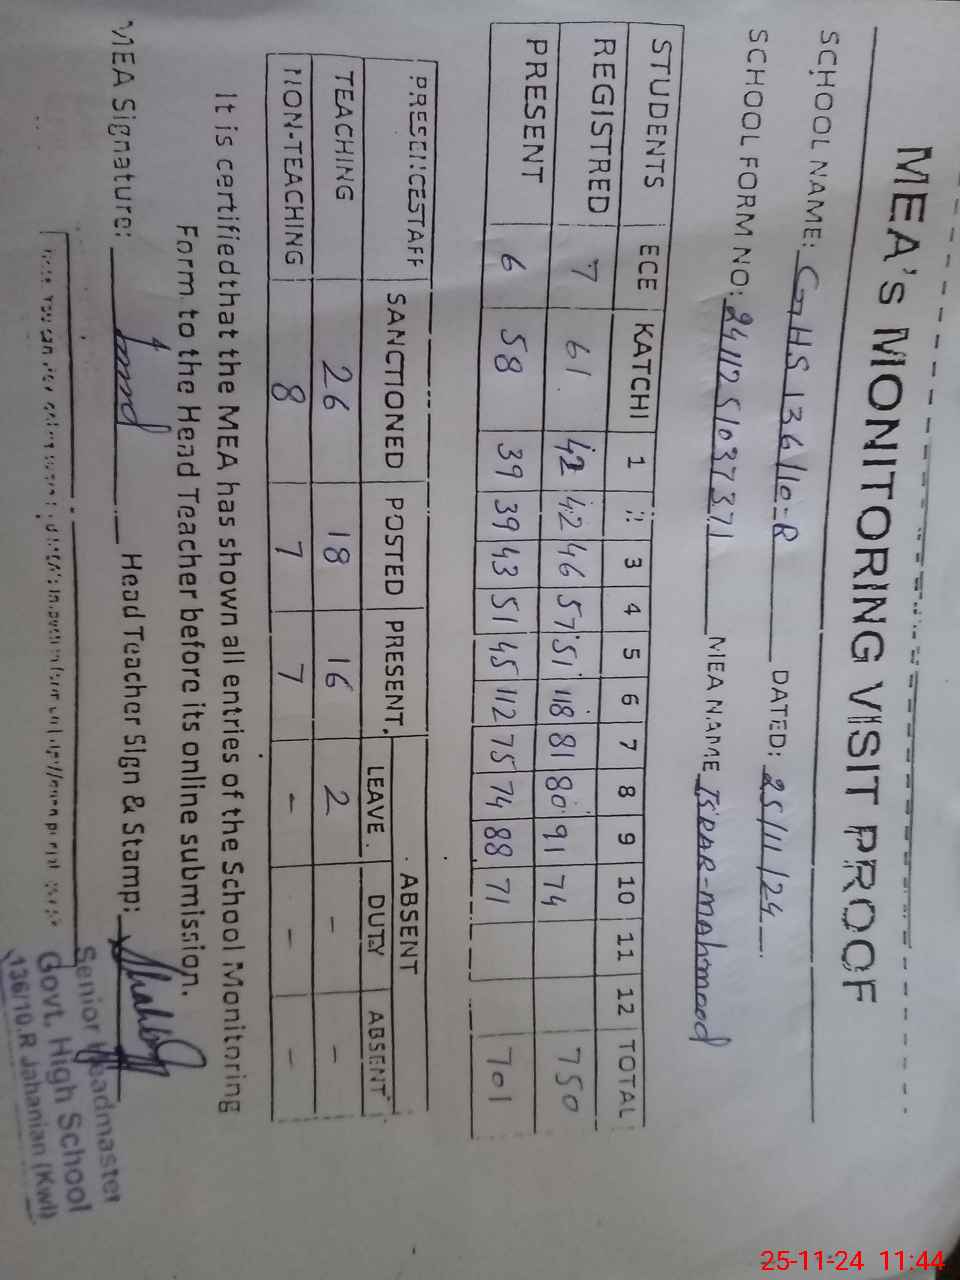 MEA's MONITORING VISIT PROOF
SCHOOL NAME: GHS 136/10-R DATED: 25/11/24
SCHOOL FORM NO: 2411251037371 MEA NAME ISRAR-mahmood
STUDENTS ECE KATCHI 1 2 3 4 5 6 7 8 9 10 11 12 TOTAL
REGISTRED 7 61 42 42 46 57 51 118 81 80 91 74 750
PRESENT 6 58 39 39 43 51 45 112 75 74 88 71 701
PRESENCESTAFF SANCTIONED POSTED PRESENT ABSENT
LEAVE DUTY ABSENT
TEACHING 26 18 16 2 - -
NON-TEACHING 8 7 7 - - -
It is certifiedthat the MEA has shown all entries of the School Monitoring
Form to the Head Teacher before its online submission.
MEA Signature: Head Teacher Sign & Stamp:
Senior Headmaster
Govt. High School
136/10.R Jahanian (Kwl)
25-11-24 11:44